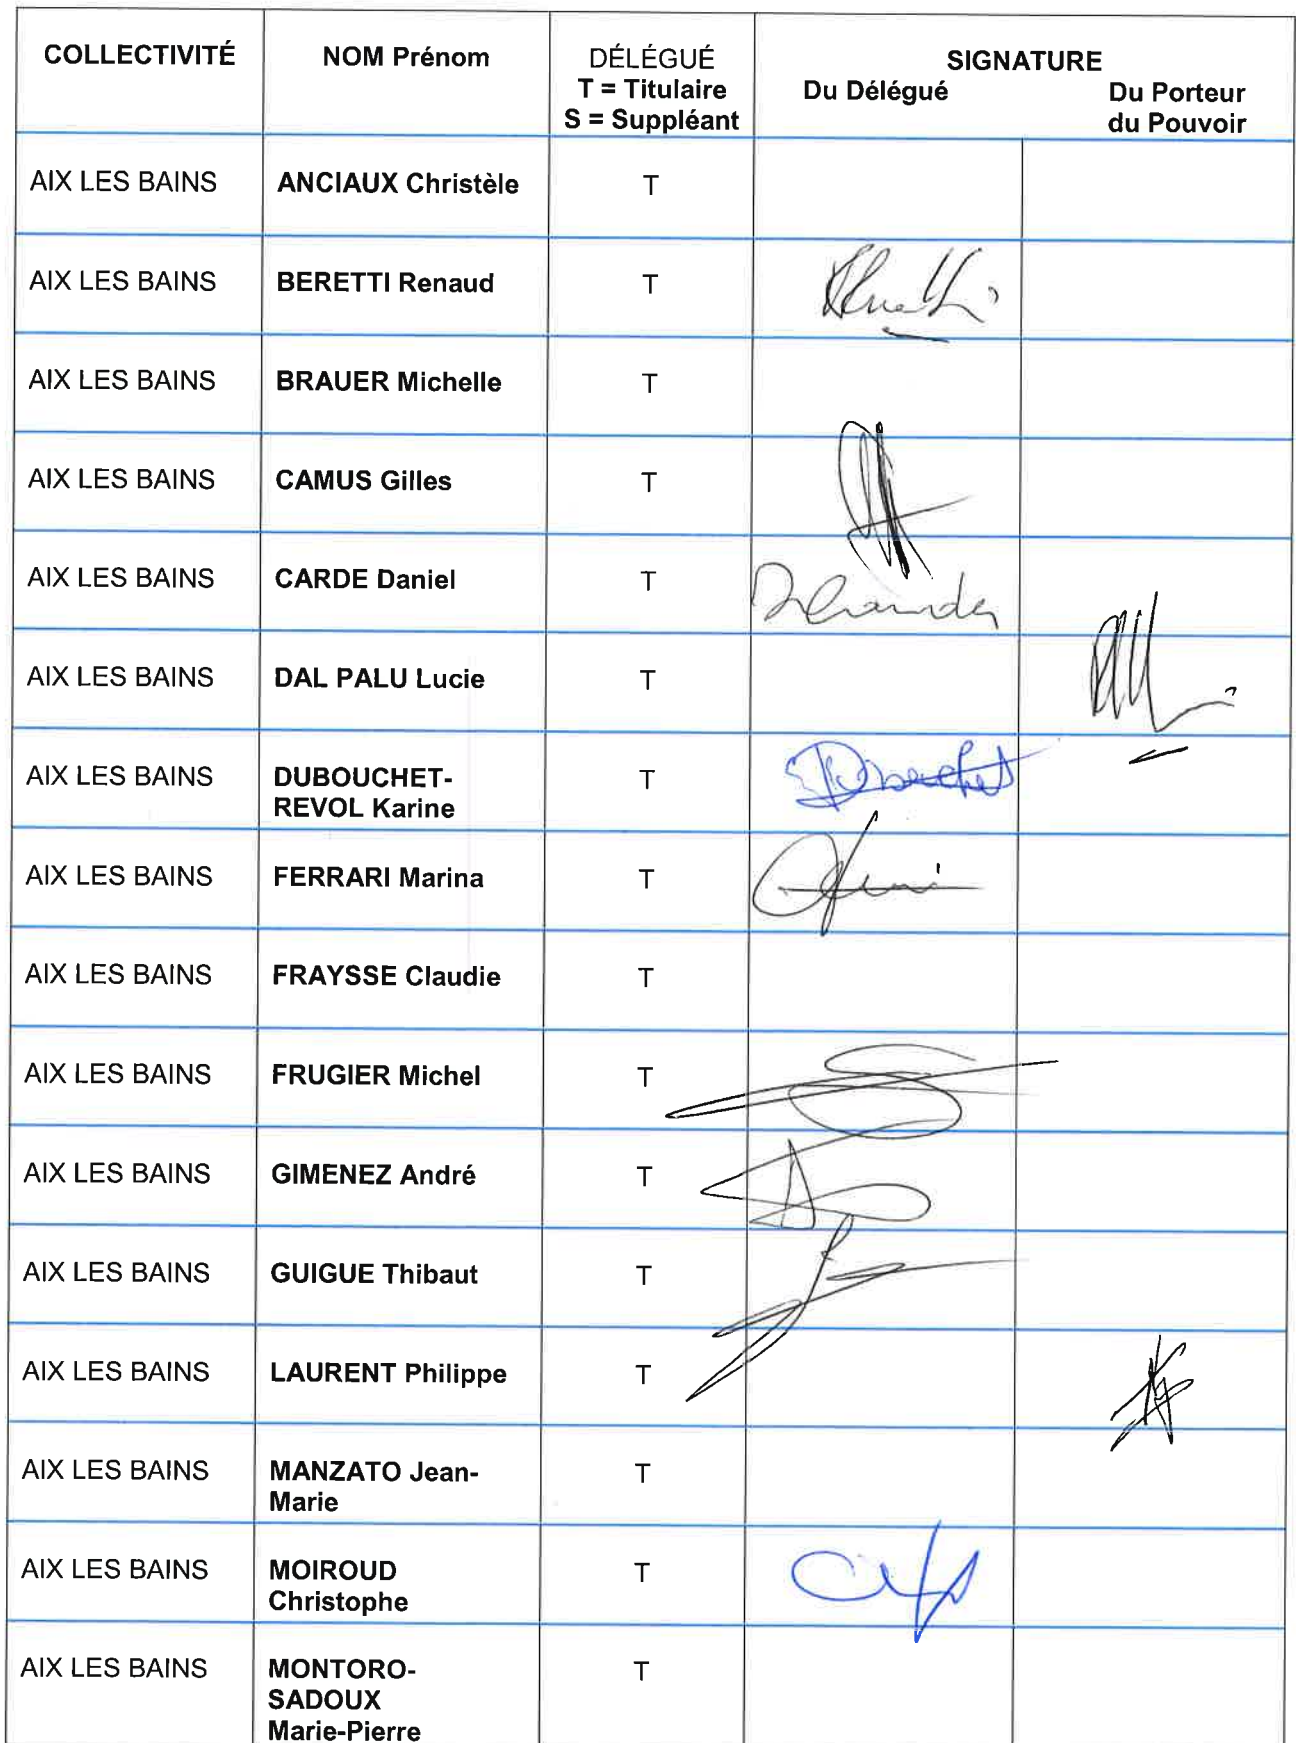 COLLECTIVITÉ NOM Prénom DÉLÉGUÉ SIGNATURE
T = Titulaire Du Délégué Du Porteur
S = Suppléant du Pouvoir
AIX LES BAINS ANCIAUX Christèle T
AIX LES BAINS BERETTI Renaud T
AIX LES BAINS BRAUER Michelle T
AIX LES BAINS CAMUS Gilles T
AIX LES BAINS CARDE Daniel T
AIX LES BAINS DAL PALU Lucie T
AIX LES BAINS DUBOUCHET- T
REVOL Karine
AIX LES BAINS FERRARI Marina T
AIX LES BAINS FRAYSSE Claudie T
AIX LES BAINS FRUGIER Michel T
AIX LES BAINS GIMENEZ André T
AIX LES BAINS GUIGUE Thibaut T
AIX LES BAINS LAURENT Philippe T
AIX LES BAINS MANZATO Jean- T
Marie
AIX LES BAINS MOIROUD T
Christophe
AIX LES BAINS MONTORO- T
SADOUX
Marie-Pierre